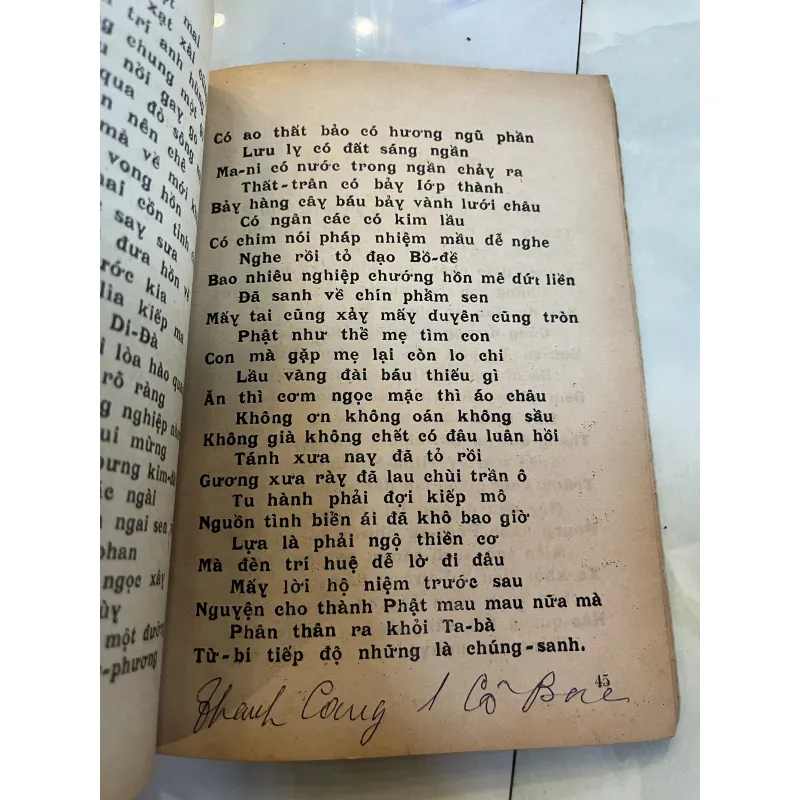 mai
xạt xài
trí anh hùng
chung một
nỗi gay go
qua đò sông
nên chê
mà về mới
vong hồn
mai cồn tỉnh
say sưa
đưa hồn về
ước kia
lìa kiếp ma
Di-Đà
lòa hào qua
rõ ràng
nghiệp
uí mừng
bưng kim-đ
ác ngài
ngai sen
phan
ngọc xây
ùy
một đườn
-phương
Có ao thất bảo có hương ngũ phần
Lưu lỵ có đất sáng ngần
Ma-ni có nước trong ngần chảy ra
Thất-trân có bảy lớp thành
Bảy hàng cây báu bảy vành lưới châu
Có ngân các có kim lầu
Có chim nói pháp nhiệm mầu dễ nghe
Nghe rồi tỏ đạo Bồ-đề
Bao nhiêu nghiệp chướng hồn mê dứt liền
Đã sanh về chín phẩm sen
Mấy tai cũng xảy mấy duyên cũng tròn
Phật như thể mẹ tìm con
Con mà gặp mẹ lại còn lo chi
Lầu vàng đài báu thiếu gì
Ăn thì cơm ngọc mặc thì áo châu
Không ơn không oán không sầu
Không già không chết có đâu luân hồi
Tánh xưa nay đã tỏ rồi
Gương xưa rày đã lau chùi trần ô
Tu hành phải đợi kiếp mô
Nguồn tình biển ái đã khô bao giờ
Lựa là phải ngộ thiền cơ
Mà đèn trí huệ dễ lờ đi đâu
Mấy lời hộ niệm trước sau
Nguyện cho thành Phật mau mau nữa mà
Phân thân ra khỏi Ta-bà
Từ-bi tiếp độ những là chúng-sanh.
45
Thanh Cang 1 Cô Bac